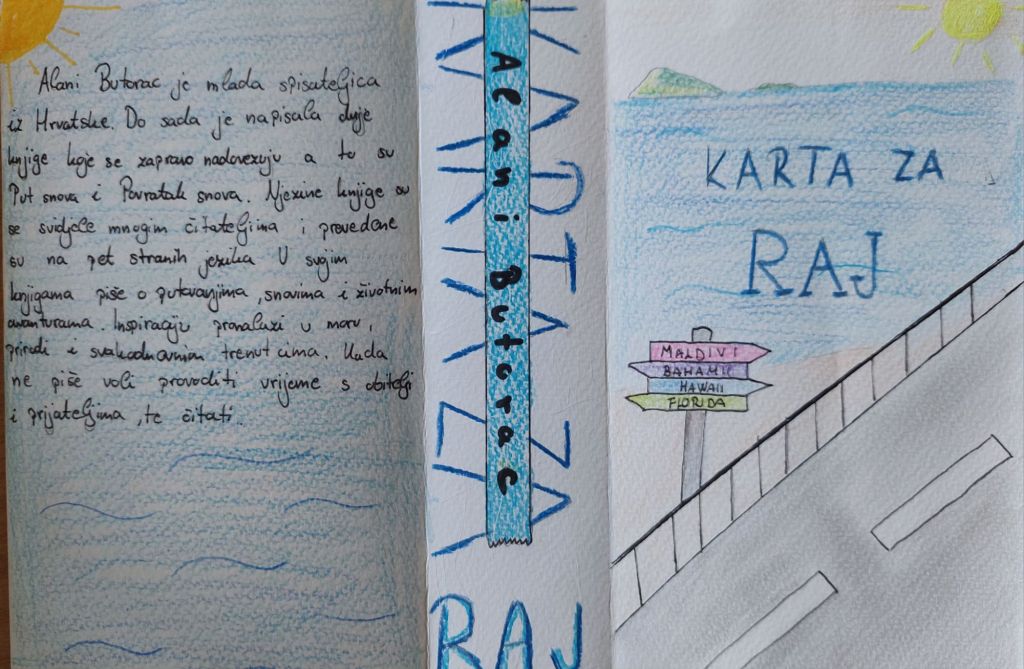 Alani Butorac je mlada spisateljica
iz Hrvatske. Do sada je napisala dvije
knjige koje se zapravo nadovezuju a to su
Put snova i Povratak snova. Njezine knjige su
se svidjele mnogim čitateljima i prevedene
su na pet stranih jezika U svojim
knjigama piše o putovanjima, snovima i životnim
avanturama. Inspiraciju pronalazi u moru,
prirodi i svakodnevnim trenutcima. Kada
ne piše voli provoditi vrijeme s obitelji
i prijateljima, te čitati.
KARTA ZA
Alani Butorac
KARTA ZA
RAJ
KARTA ZA
RAJ
MALDIVI
BAHAMI
HAWAII
FLORIDA